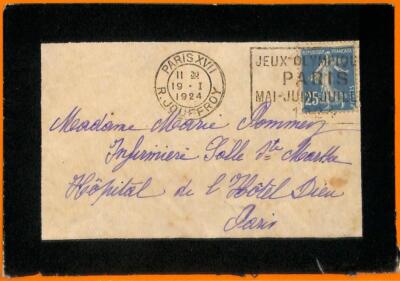 PARIS XVII
11 H
19 - I
1924
R. JOUFFROY
JEUX OLYMPIQU
PARIS
MAI-JUIN-JUILLE
RÉPUBLIQUE FRANÇAISE
25
Madame Marie
Infirmière Salle Ste Marthe
Hôpital de l'Hôtel Dieu
Paris